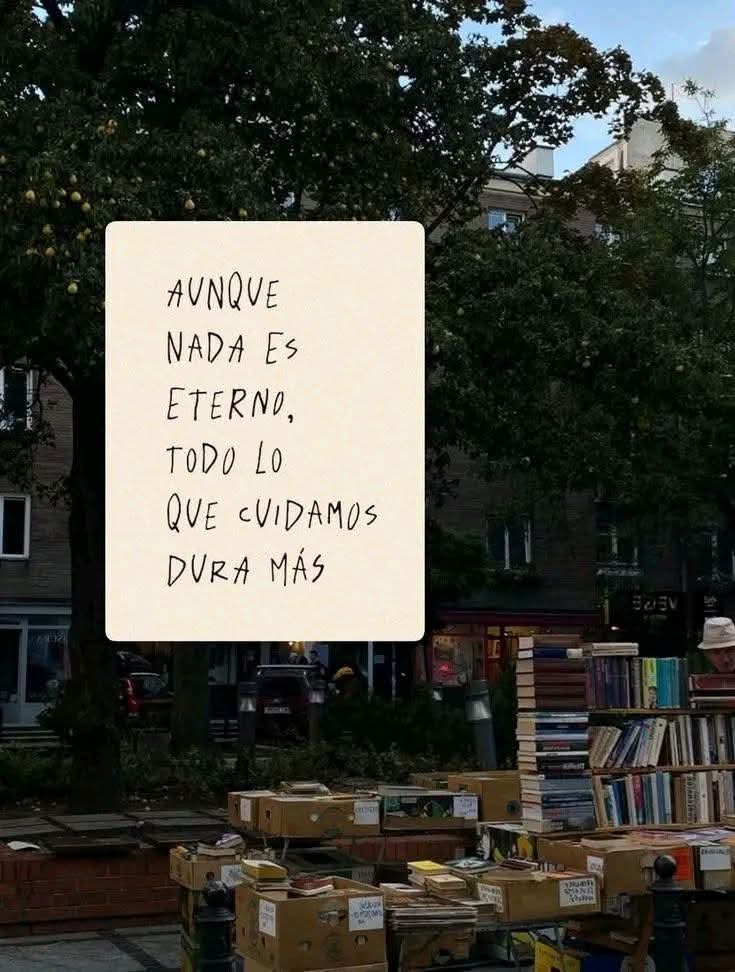 AUNQUE
NADA ES
ETERNO,
TODO LO
QUE CUIDAMOS
DURA MÁS